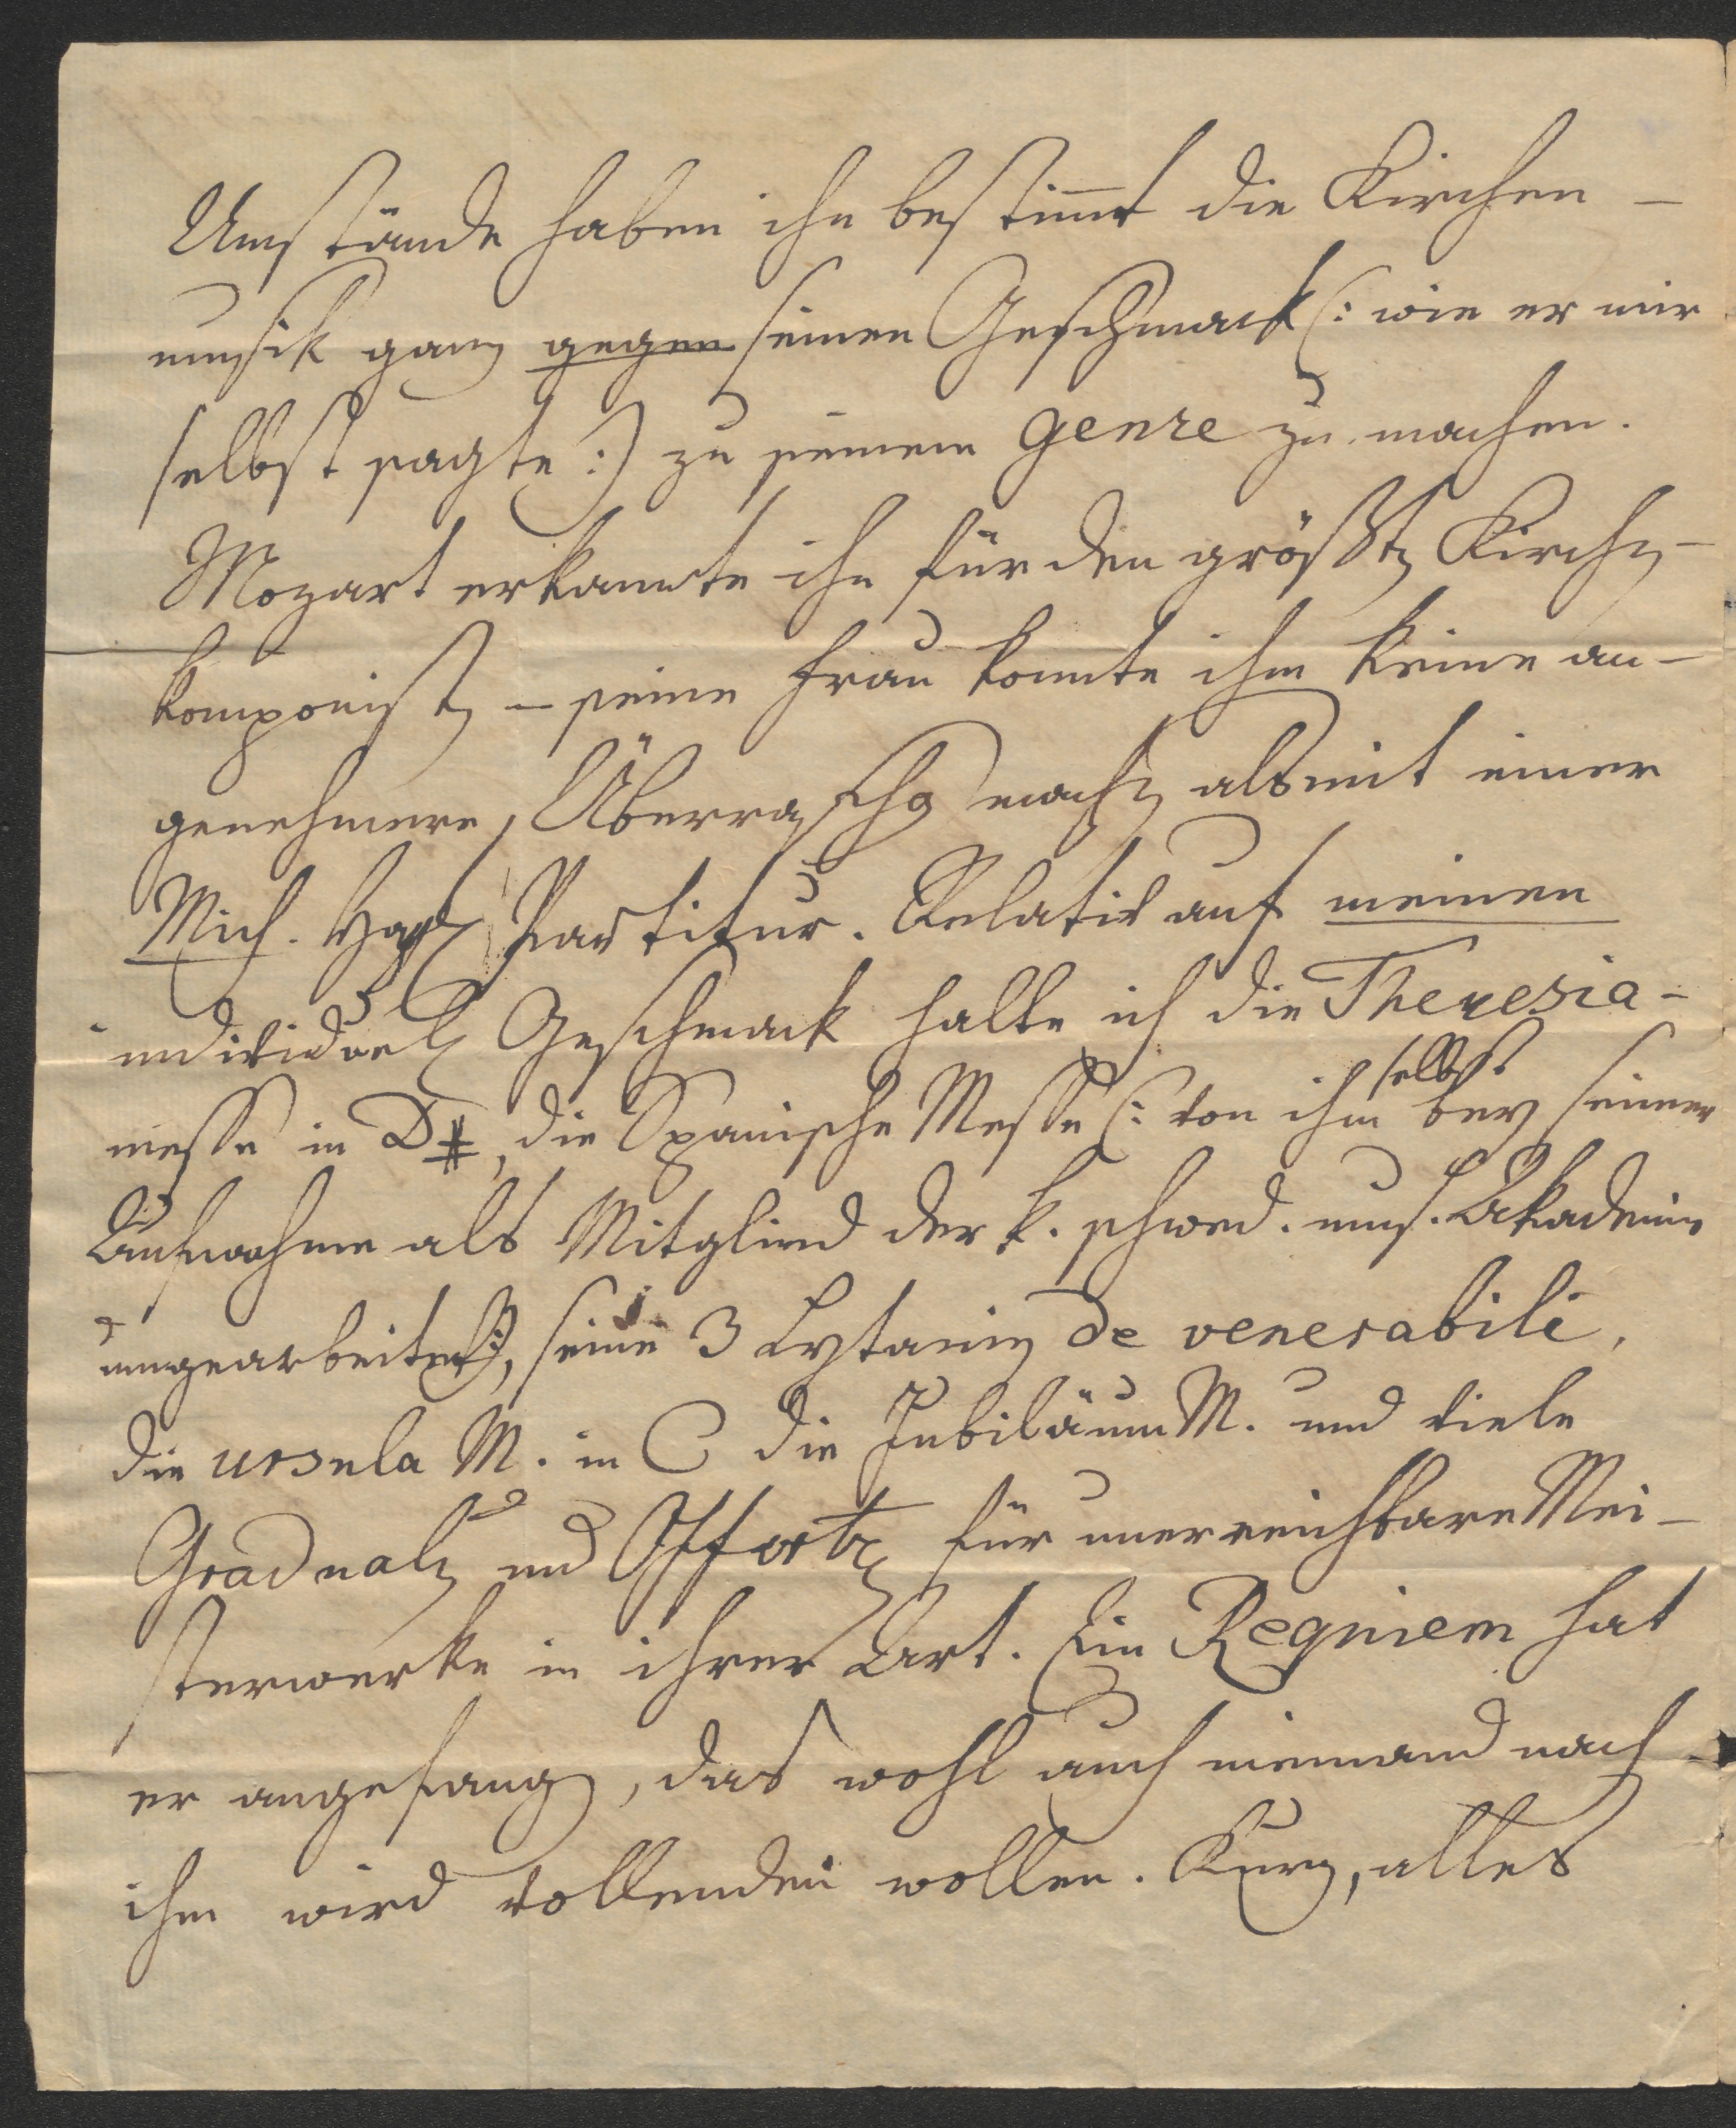 Umstände haben ihn bestim̅t die Kirchen-
musik ganz gegen seinen Geschmack (: wie er mir
selbst sagte :) zu seinem genre zu machen.
Mozart erkannte ihn für den größten Kirchen-
komponisten – seine Frau konnte ihm keine an-
genehmere Überraschg machen als mit einer
Mich. Hayd Partitur. Relativ auf meinen
individuellen Geschmack halte ich die Theresia-
messe in D#, die Spanische Messe (: von ihm selbst bey seiner
Aufnahme als Mitglied der k. schwed. mus. Akademie
umgearbeitet :), seine 3 Lytanien de venerabili,
die ursula M. in C die Jubiläum M. und viele
Gradualen und Offert für unerreichbare Mei-
sterwerke in ihrer Art. Ein Requiem hat
er angefangen, das wohl auch niemand nach
ihm wird vollenden wollen. Kurz, alles